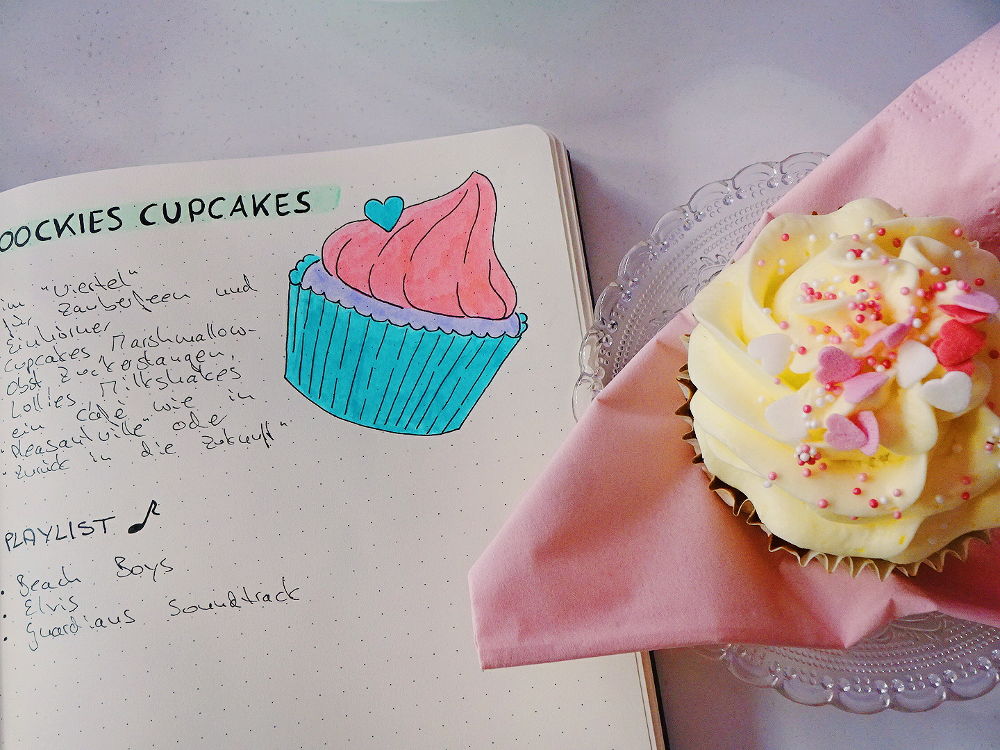 OOCKIES CUPCAKES
im "Viertel"
für Zauberfeen und
Einhörner
Cupcakes, Marshmallow-
obst, Zuckerstangen,
Lollies, Milkshakes
ein Café wie in
"Pleasantville" oder
"Zurück in die Zukunft"
PLAYLIST
• Beach Boys
• Elvis
• Guardians Soundtrack